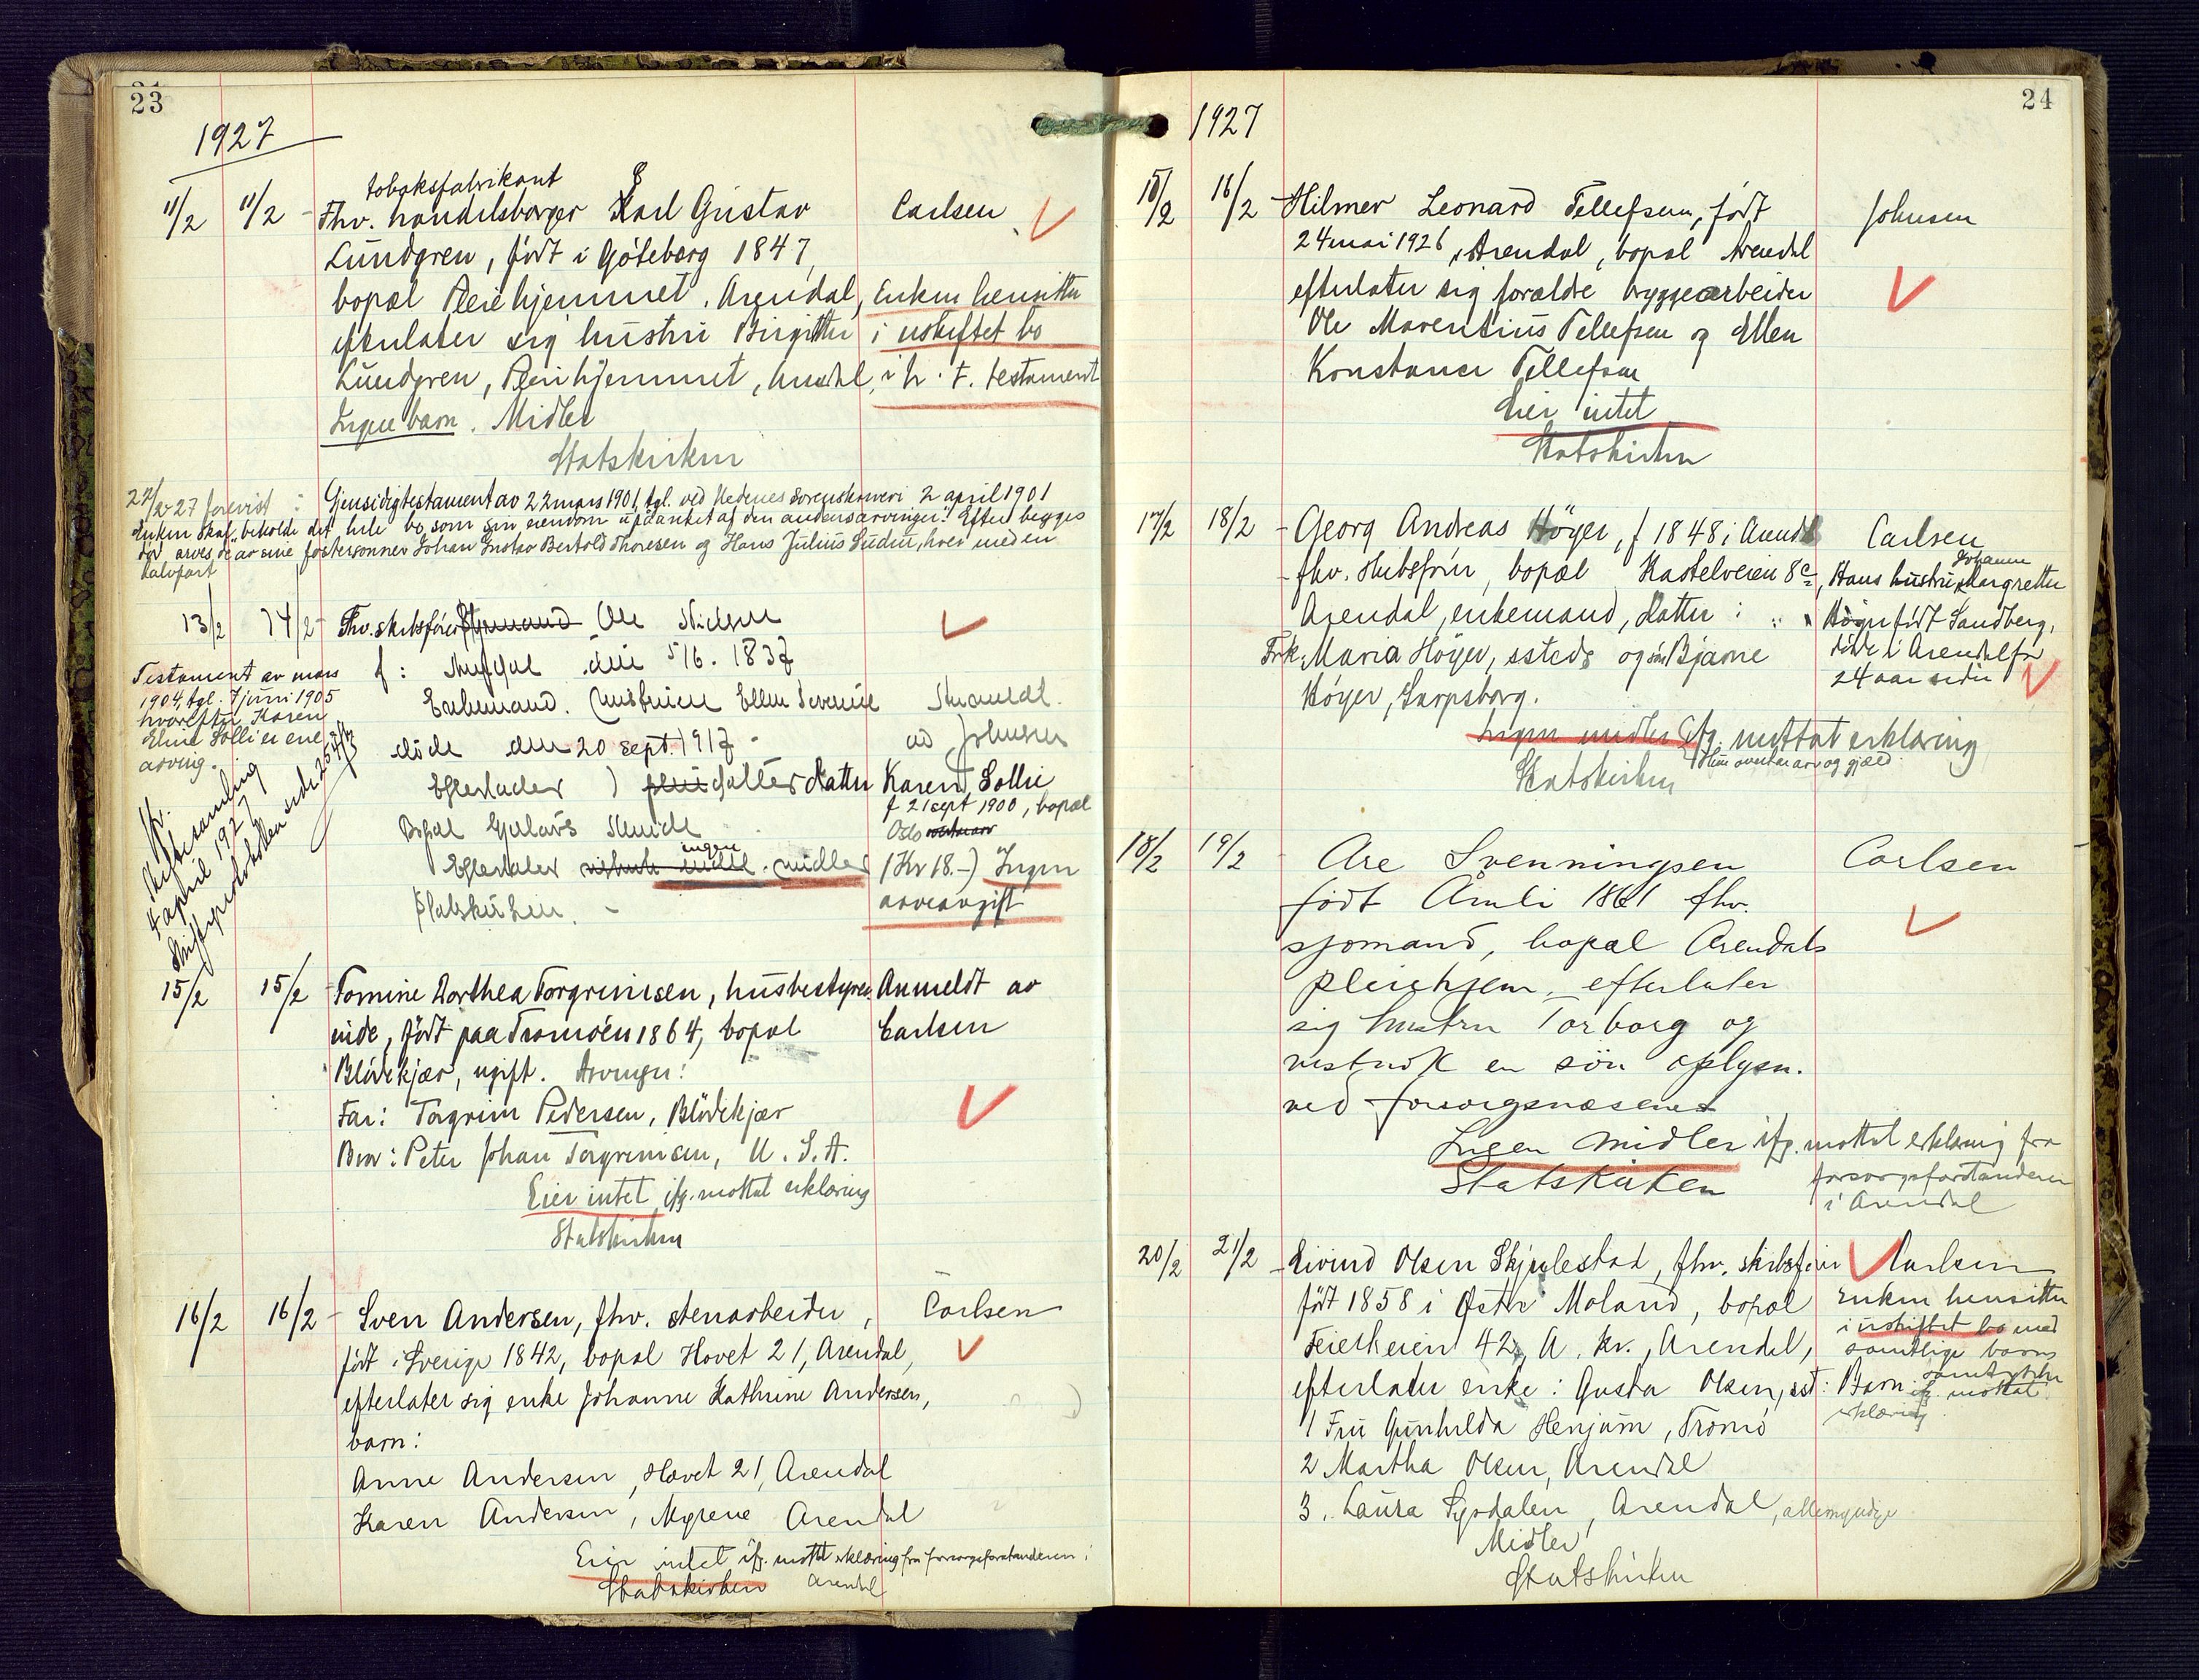 23
1927
tobaksfabrikant
11/2 11/2 - Fhv. handelsborger Karl Gustav Carlsen
Lundgren, født i Göteborg 1847,
bopæl Pleiehjemmet, Arendal, Enken hensitter
efterlater sig hustru Birgitte i uskiftet bo
Lundgren, Pleiehjemmet, Arendal, i h. t. testament
Ingen barn. Midler
Statskirken
22/2 27 forevist: Gjensidig testament av 22 mars 1901, tgl. ved Nedenes Sorenskriveri 2 april 1901
Enken skal "beholde det hele bo som sin eiendom upaanket af den andens arvinger." Efter begges
død arves de av sine fostersønner Johan Gustav Bertold Thoresen og Hans Julius Suden, hver med en
halvpart
13/2 14/2 - Fhv. skibsfører Styrmand Ole Nielsen
f: den 5/6. 1837
Testament av mars
1904, tgl. 7 juni 1905
hvorefter Karen
Eline Solli er ene-
arving.
Enkemand. Hustruen Ellen Severine Anmeldt
døde den 20 sept. 1917 - av Johnsen
Efterlader 1 pleiedatter Datter Karen Sollie
f 21 sept 1900, bopæl
Oslo
Bopæl
Efterlater ingen midler (Kr 18.-) Ingen
Statskirken. - arveavgift
Skiftesamling
4 april 1927
15/2 15/2 - Tomine Dorthea Torgrimsen, husbestyrer- Anmeldt av
inde, født paa Tromøen 1864, bopæl Carlsen
Blødekjær, ugift. Arvinger:
Far: Torgrim Pedersen, Blødekjær
Bror: Peter Johan Torgrimsen, U. S. A.
Eier intet ifg. mottat erklæring
Statskirken
16/2 16/2 - Sven Andersen, fhv. stenarbeider, Carlsen
født i Sverige 1842, bopæl Hovet 21, Arendal,
efterlater sig enke Johanne Kathrine Andersen,
barn:
Anne Andersen, Hovet 21, Arendal
Karen Andersen, Myrene Arendal
Eier intet ifg. mottat erklæring fra forsorgsforstanderen i
Statskirken Arendal
24
1927
15/2 16/2 - Hilmer Leonard Tellefsen, født Johnsen
24 mai 1926 i Arendal, bopæl Arendal
efterlater sig forældre bryggearbeider
Ole Marentius Tellefsen og Ellen
Konstance Tellefsen
Eier intet
Statskirken
17/2 18/2 - Georg Andreas Höyer, f 1848 i Arendal Carlsen
fhv. skibsfører, bopæl Kastelveien 8c, Hans hustru Johanne Margrethe
Arendal, enkemand, Datter: Höyer født Sandberg,
Frk. Maria Höyer, ssteds og sön Bjarne døde i Arendal for
Höyer, Sarpsborg. 24 aar siden
Ingen midler ifg. mottat erklæring
Hun overtar arv og gjæld
Statskirken
18/2 19/2 - Are Svenningsen Carlsen
født Åmli 1861 fhv.
sjømand, bopæl Arendals
pleiehjem, efterlater
sig hustru Torborg og
vistnok en sön oplysn.
ved forsorgsvæsenet
Ingen midler ifg. mottat erklæring fra
Statskirken forsorgsforstanderen
i Arendal
20/2 21/2 - Eivind Olsen Skjulestad, fhv. skibsfører Carlsen
født 1858 i Østre Moland, bopæl Enken hensitter
Feierheien 42, A. kv., Arendal, i uskiftet bo med
samtlige barns
samtykke
efterlater enke: Gusta Olsen, sst: Barn: ifg. mottat
1 Fru Gunhilda Henjum, Tromö erklæring
2 Martha Olsen, Arendal
3. Laura Sysdalen, Arendal, alle myndige
Midler
Statskirken